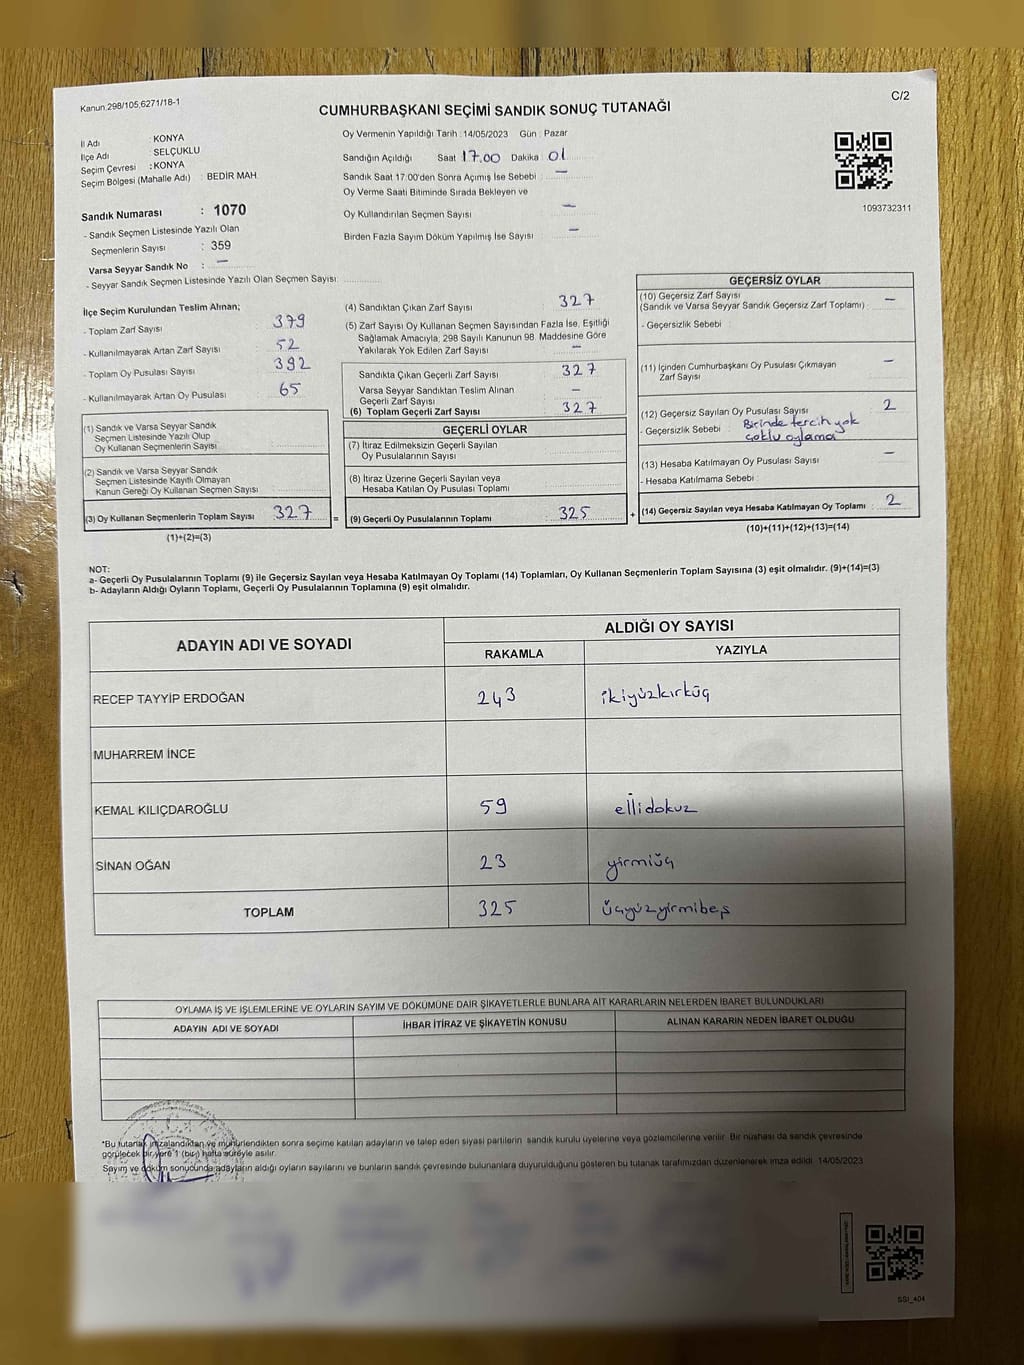 Kanun.298/105,6271/18-1
C/2
CUMHURBAŞKANI SEÇİMİ SANDIK SONUÇ TUTANAĞI
İl Adı : KONYA
İlçe Adı : SELÇUKLU
Seçim Çevresi : KONYA
Seçim Bölgesi (Mahalle Adı) : BEDİR MAH.
Sandık Numarası : 1070
- Sandık Seçmen Listesinde Yazılı Olan
Seçmenlerin Sayısı : 359
Varsa Seyyar Sandık No : —
- Seyyar Sandık Seçmen Listesinde Yazılı Olan Seçmen Sayısı:
Oy Vermenin Yapıldığı Tarih : 14/05/2023 Gün : Pazar
Sandığın Açıldığı Saat 17.00 Dakika : 01
Sandık Saat 17:00'den Sonra Açımış İse Sebebi : —
Oy Verme Saati Bitiminde Sırada Bekleyen ve
Oy Kullandırılan Seçmen Sayısı : —
Birden Fazla Sayım Döküm Yapılmış İse Sayısı : —
1093732311
İlçe Seçim Kurulundan Teslim Alınan;
- Toplam Zarf Sayısı : 379
- Kullanılmayarak Artan Zarf Sayısı : 52
- Toplam Oy Pusulası Sayısı : 392
- Kullanılmayarak Artan Oy Pusulası : 65
(1) Sandık ve Varsa Seyyar Sandık
Seçmen Listesinde Yazılı Olup
Oy Kullanan Seçmenlerin Sayısı :
(2) Sandık ve Varsa Seyyar Sandık
Seçmen Listesinde Kayıtlı Olmayan
Kanun Gereği Oy Kullanan Seçmen Sayısı :
(3) Oy Kullanan Seçmenlerin Toplam Sayısı : 327
(1)+(2)=(3)
(4) Sandıktan Çıkan Zarf Sayısı : 327
(5) Zarf Sayısı Oy Kullanan Seçmen Sayısından Fazla İse, Eşitliği
Sağlamak Amacıyla, 298 Sayılı Kanunun 98. Maddesine Göre
Yakılarak Yok Edilen Zarf Sayısı : —
Sandıkta Çıkan Geçerli Zarf Sayısı : 327
Varsa Seyyar Sandıktan Teslim Alınan
Geçerli Zarf Sayısı : —
(6) Toplam Geçerli Zarf Sayısı : 327
GEÇERLİ OYLAR
(7) İtiraz Edilmeksizin Geçerli Sayılan
Oy Pusulalarının Sayısı :
(8) İtiraz Üzerine Geçerli Sayılan veya
Hesaba Katılan Oy Pusulası Toplamı :
= (9) Geçerli Oy Pusulalarının Toplamı : 325
GEÇERSİZ OYLAR
(10) Geçersiz Zarf Sayısı
(Sandık ve Varsa Seyyar Sandık Geçersiz Zarf Toplamı) : —
- Geçersizlik Sebebi :
(11) İçinden Cumhurbaşkanı Oy Pusulası Çıkmayan
Zarf Sayısı : —
(12) Geçersiz Sayılan Oy Pusulası Sayısı : 2
- Geçersizlik Sebebi : Birinde tercih yok
çoklu oylama
(13) Hesaba Katılmayan Oy Pusulası Sayısı : —
- Hesaba Katılmama Sebebi :
+ (14) Geçersiz Sayılan veya Hesaba Katılmayan Oy Toplamı : 2
(10)+(11)+(12)+(13)=(14)
NOT:
a- Geçerli Oy Pusulalarının Toplamı (9) ile Geçersiz Sayılan veya Hesaba Katılmayan Oy Toplamı (14) Toplamları, Oy Kullanan Seçmenlerin Toplam Sayısına (3) eşit olmalıdır. (9)+(14)=(3)
b- Adayların Aldığı Oyların Toplamı, Geçerli Oy Pusulalarının Toplamına (9) eşit olmalıdır.
ADAYIN ADI VE SOYADI
ALDIĞI OY SAYISI
RAKAMLA YAZIYLA
RECEP TAYYİP ERDOĞAN 243 ikiyüzkırküç
MUHARREM İNCE
KEMAL KILIÇDAROĞLU 59 ellidokuz
SİNAN OĞAN 23 yirmiüç
TOPLAM 325 üçyüzyirmibeş
OYLAMA İŞ VE İŞLEMLERİNE VE OYLARIN SAYIM VE DÖKÜMÜNE DAİR ŞİKAYETLERLE BUNLARA AİT KARARLARIN NELERDEN İBARET BULUNDUKLARI
ADAYIN ADI VE SOYADI İHBAR İTİRAZ VE ŞİKAYETİN KONUSU ALINAN KARARIN NEDEN İBARET OLDUĞU
*Bu tutanak imzalandıktan ve mühürlendikten sonra seçime katılan adayların ve talep eden siyasi partilerin sandık kurulu üyelerine veya gözlemcilerine verilir. Bir nüshası da sandık çevresinde
görülecek bir yere 1 (bir) hafta süreyle asılır.
Sayım ve döküm sonucunda adayların aldığı oyların sayılarını ve bunların sandık çevresinde bulunanlara duyurulduğunu gösteren bu tutanak tarafımızdan düzenlenerek imza edildi. 14/05/2023
SSI_404